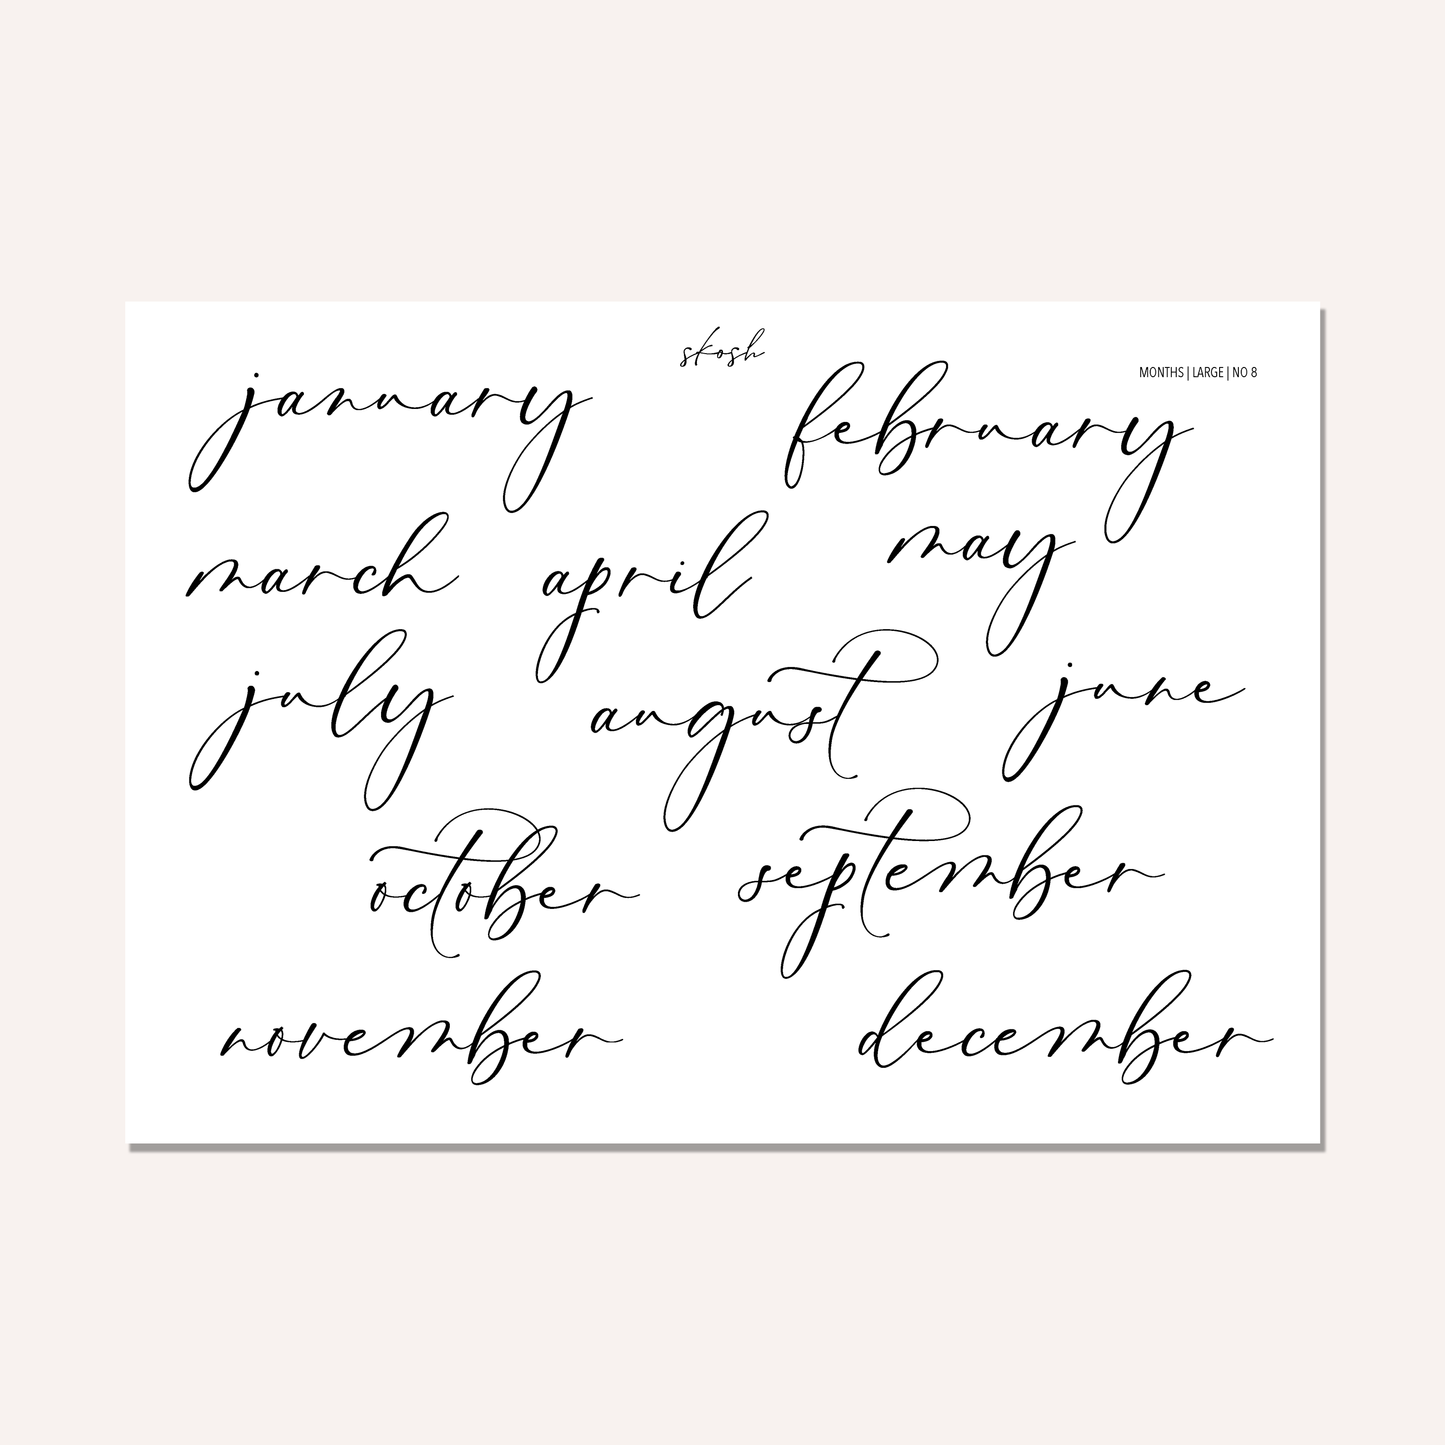 skosh
MONTHS | LARGE | NO 8
january february
march april may
july august june
october september
november december